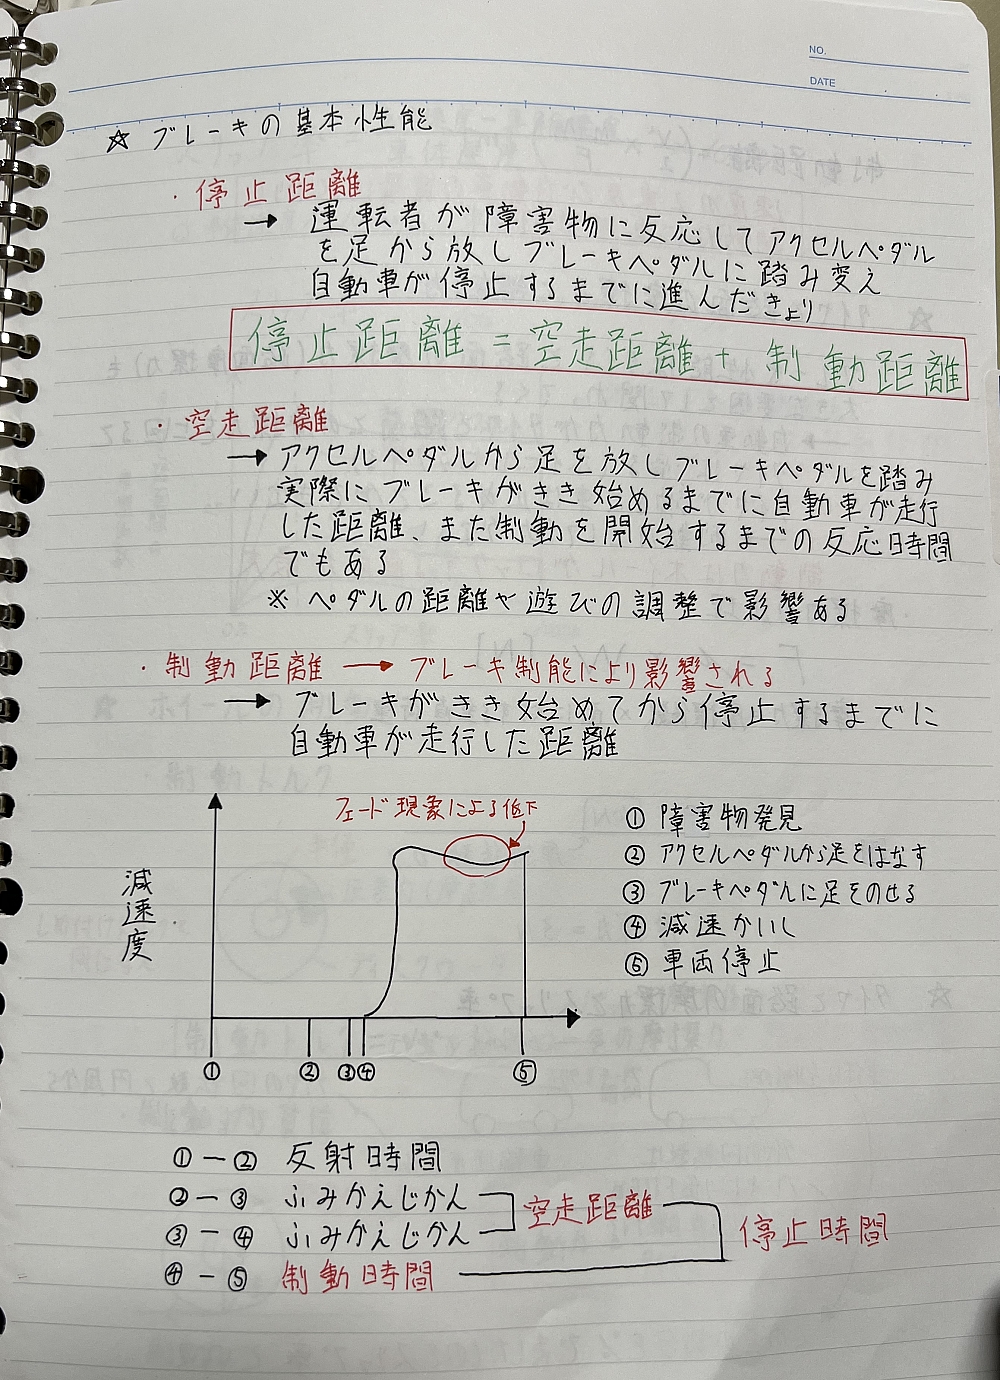 NO.
DATE
☆ ブレーキの基本性能
・停止距離
→ 運転者が障害物に反応してアクセルペダル
を足から放しブレーキペダルに踏み変え
自動車が停止するまでに進んだきょり
停止距離 = 空走距離 + 制動距離
・空走距離
→ アクセルペダルから足を放しブレーキペダルを踏み
実際にブレーキがきき始めるまでに自動車が走行
した距離、また制動を開始するまでの反応時間
でもある
※ ペダルの距離や遊びの調整で影響ある
・制動距離 → ブレーキ制能により影響される
→ ブレーキがきき始めてから停止するまでに
自動車が走行した距離
フェード現象による低下
減速度
① ② ③ ④ ⑤
① 障害物発見
② アクセルペダルから足をはなす
③ ブレーキペダルに足をのせる
④ 減速かいし
⑤ 車両停止
① ー ② 反射時間
② ー ③ ふみかえじかん
③ ー ④ ふみかえじかん
空走距離
④ ー ⑤ 制動時間
停止時間